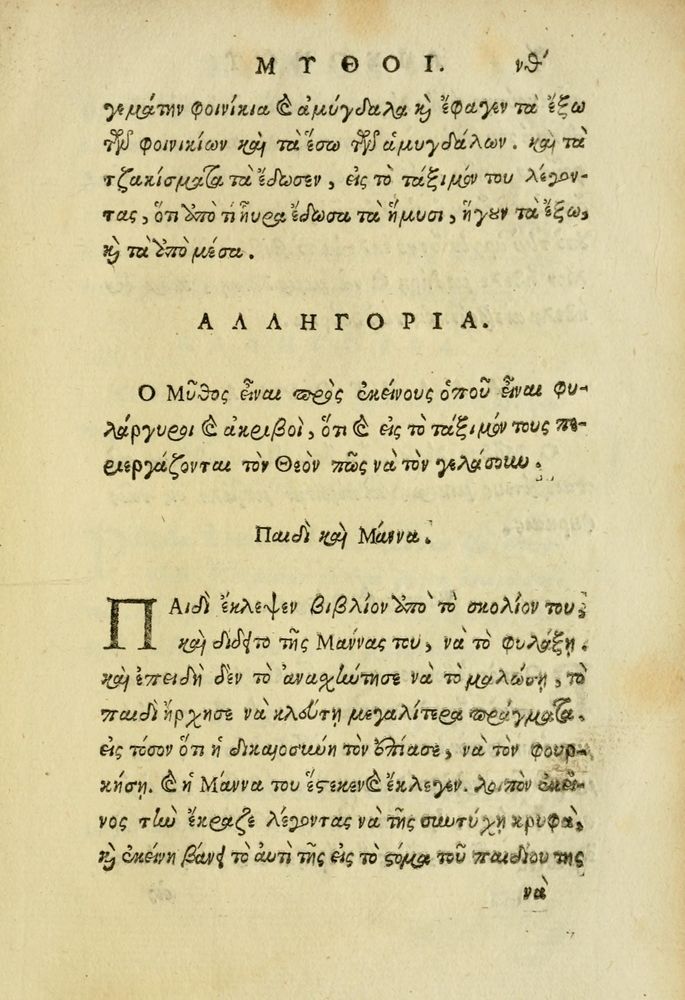 ΜΥΘΟΙ. νθ'
γεμάτην φοινίκια καὶ ἀμύγδαλα καὶ ἔφαγεν τὰ ἔξω
τῶν φοινικίων καὶ τὰ ἔσω τῶν ἀμυγδάλων. καὶ τὰ
τζακίσματα τὰ ἔδωσεν, εἰς τὸ τάξιμόν του λέγον-
τας, ὅτι ἀπὸ τί ηὗρα ἔδωσα τὰ ἥμυσι, ἤγουν τὰ ἔξω,
καὶ τὰ ἀπὸ μέσα.
ΑΛΛΗΓΟΡΙΑ.
Ο Μῦθος εἶναι πρὸς ἐκείνους ὁποῦ εἶναι φυ-
λάργυροι καὶ ἀκριβοὶ, ὅτι καὶ εἰς τὸ τάξιμόν τους πε-
ριεργάζονται τὸν Θεὸν πῶς νὰ τὸν γελάσουν.
Παιδὶ καὶ Μάννα.
ΠΑιδὶ ἔκλεψεν βιβλίον ἀπὸ τὸ σκολίον του,
καὶ δίδει το τῆς Μάννας του, νὰ τὸ φυλάξῃ.
καὶ ἐπειδὴ δὲν τὸ ἀναχώτησε νὰ τὸ μαλώσῃ, τὸ
παιδὶ ἤρχησε νὰ κλούτη μεγαλίτερα πράγματα.
εἰς τόσον ὅτι ἡ δικαιοσύνη τὸν ἐπίασε, νὰ τὸν φουρ-
κήσῃ. καὶ ἡ Μάννα του ἕστεκεν καὶ ἔκλεγεν. λοιπὸν ἐκεῖ-
νος τὴν ἔκραξε λέγοντας νὰ τῆς συντύχῃ κρυφὰ,
καὶ ἐκείνη βάνει τὸ ἀυτὶ τῆς εἰς τὸ στόμα τοῦ παιδίου της
νὰ